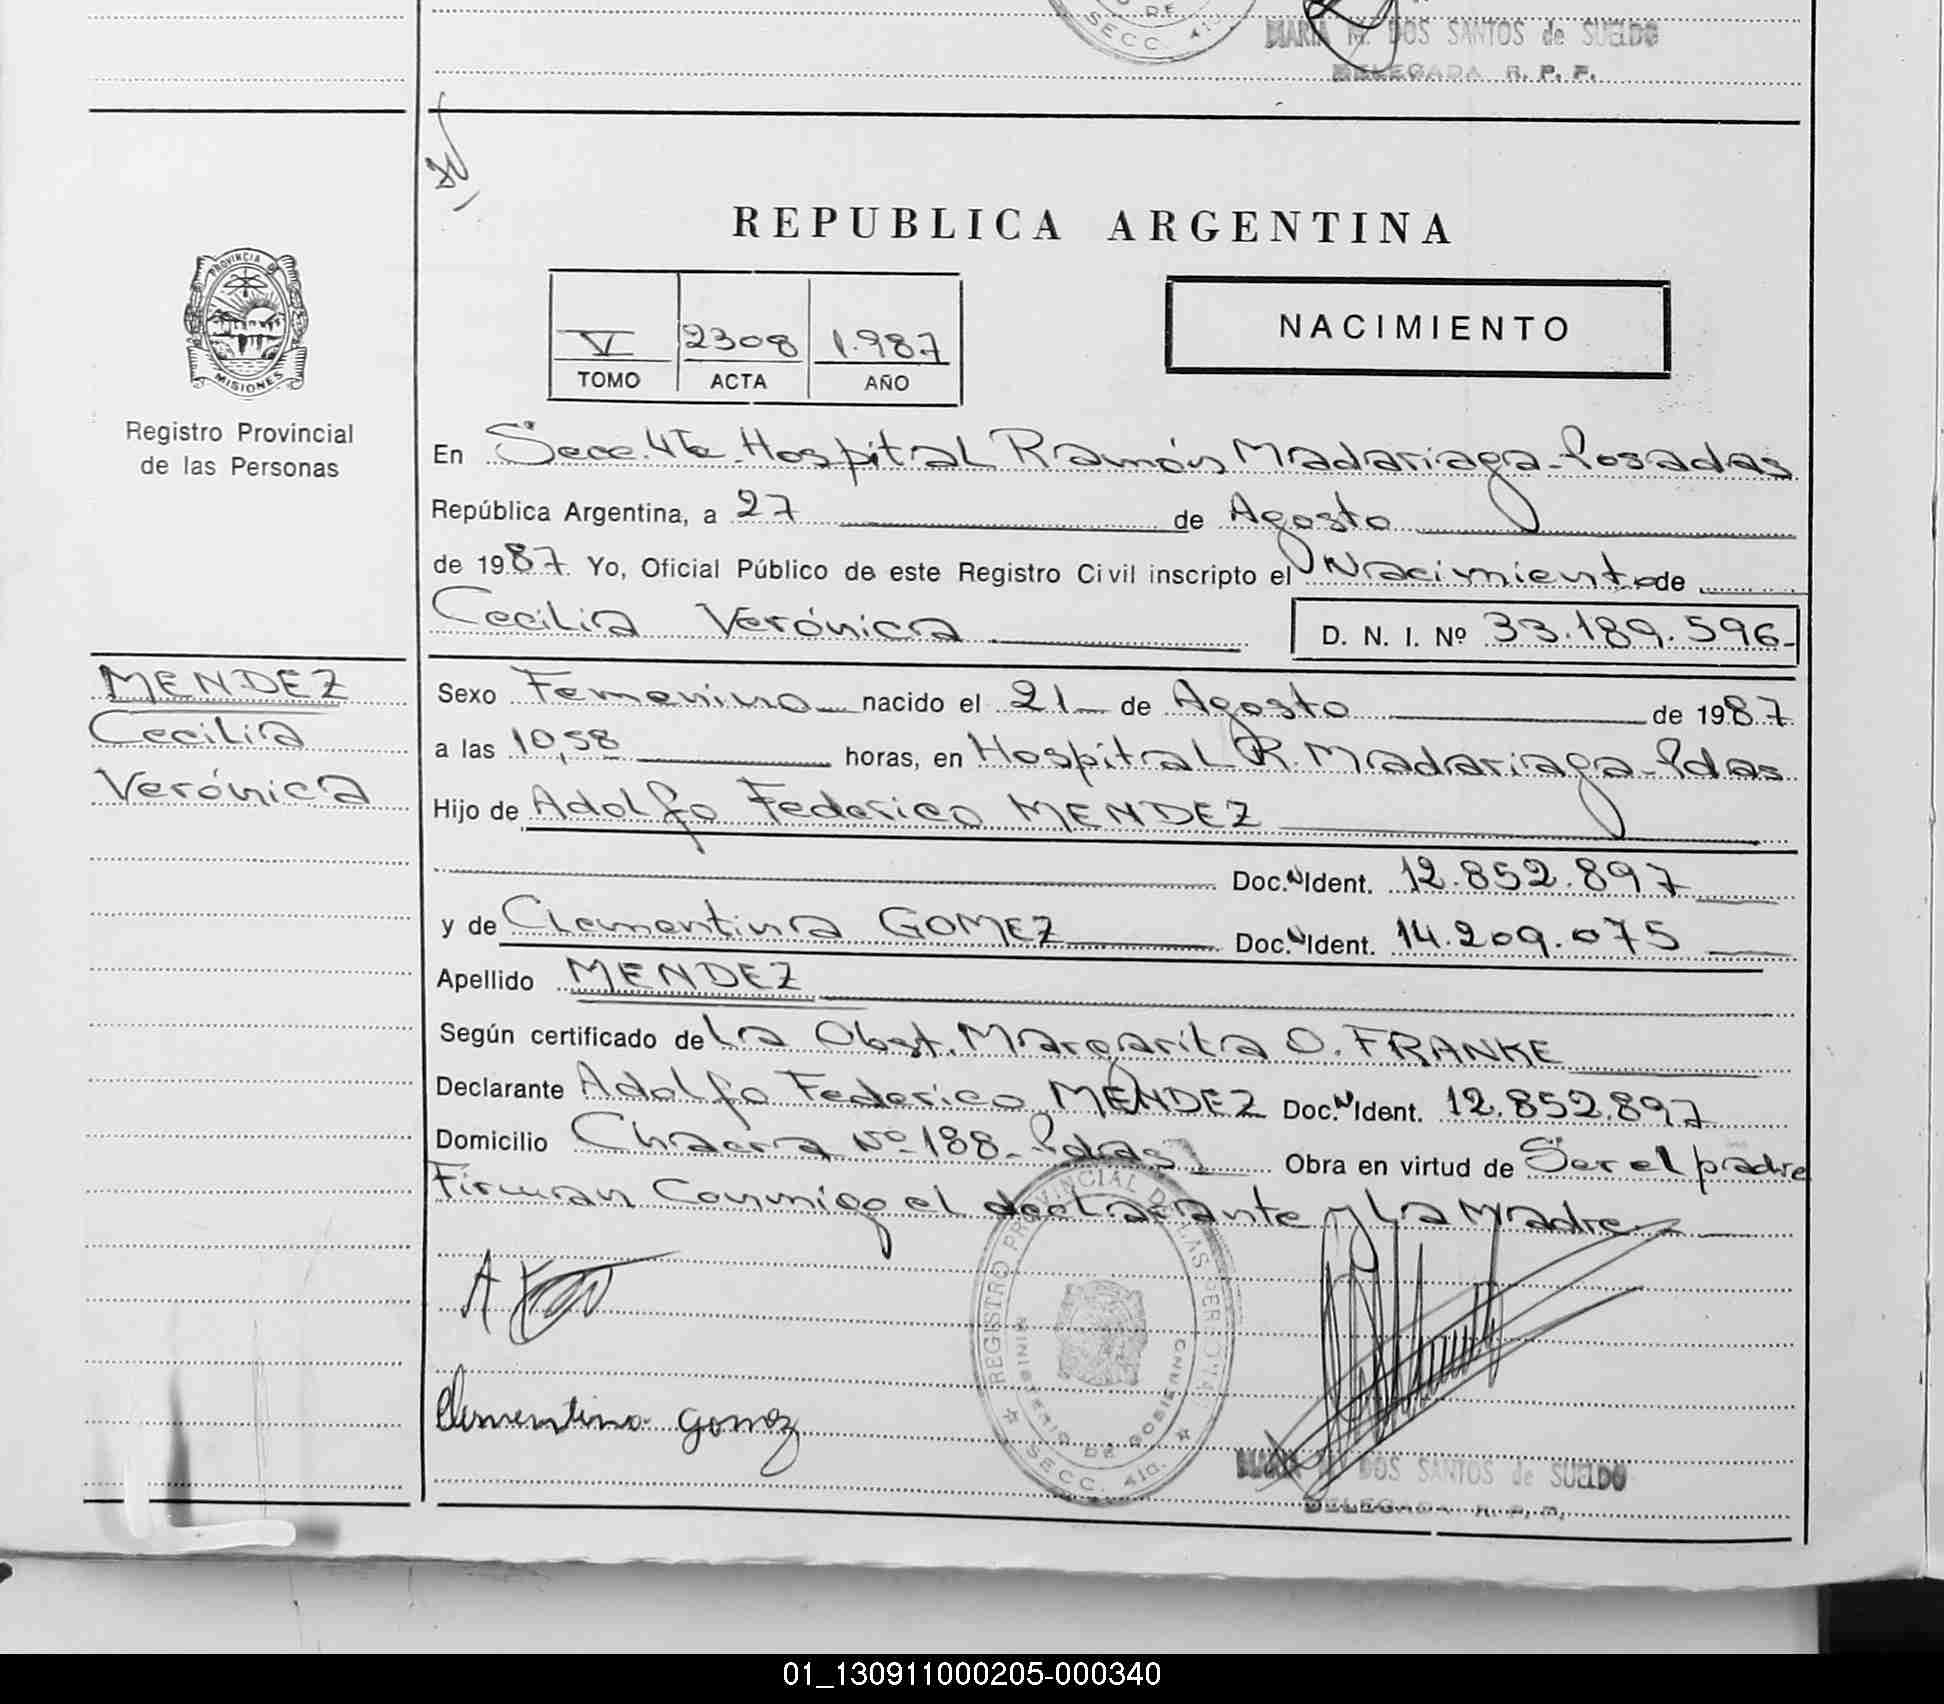 DE
SECC. 4ta.
MARIA M. DOS SANTOS de SUELDO
DELEGADA R. P. P.
REPUBLICA ARGENTINA
PROVINCIA DE
MISIONES
Registro Provincial
de las Personas
V 2308 1.987
TOMO ACTA AÑO
NACIMIENTO
En Secc. 4ta. Hospital Ramón Madariaga - Posadas
República Argentina, a 27 de Agosto
de 1987. Yo, Oficial Público de este Registro Civil inscripto el Nacimiento de
Cecilia Verónica D. N. I. Nº 33.189.596-
MENDEZ
Cecilia
Verónica
Sexo Femenino nacido el 21 de Agosto de 1987.
a las 10,58 horas, en Hospital R. Madariaga - Pdas
Hijo de Adolfo Federico MENDEZ
Doc. N Ident. 12.852.897
y de Clementina GOMEZ Doc. N Ident. 14.209.075
Apellido MENDEZ
Según certificado de la Obst. Margarita O. FRANKE
Declarante Adolfo Federico MENDEZ Doc. N Ident. 12.852.897
Domicilio Chacra Nº 188 - Pdas Obra en virtud de Ser el padre
Firman Conmigo el declarante y La Madre
REGISTRO PROVINCIAL DE LAS PERSONAS
MINISTERIO DE GOBIERNO
SECC. 4ta.
Clementina gomez
MARIA M. DOS SANTOS de SUELDO
DELEGADA R. P. P.
01_130911000205-000340